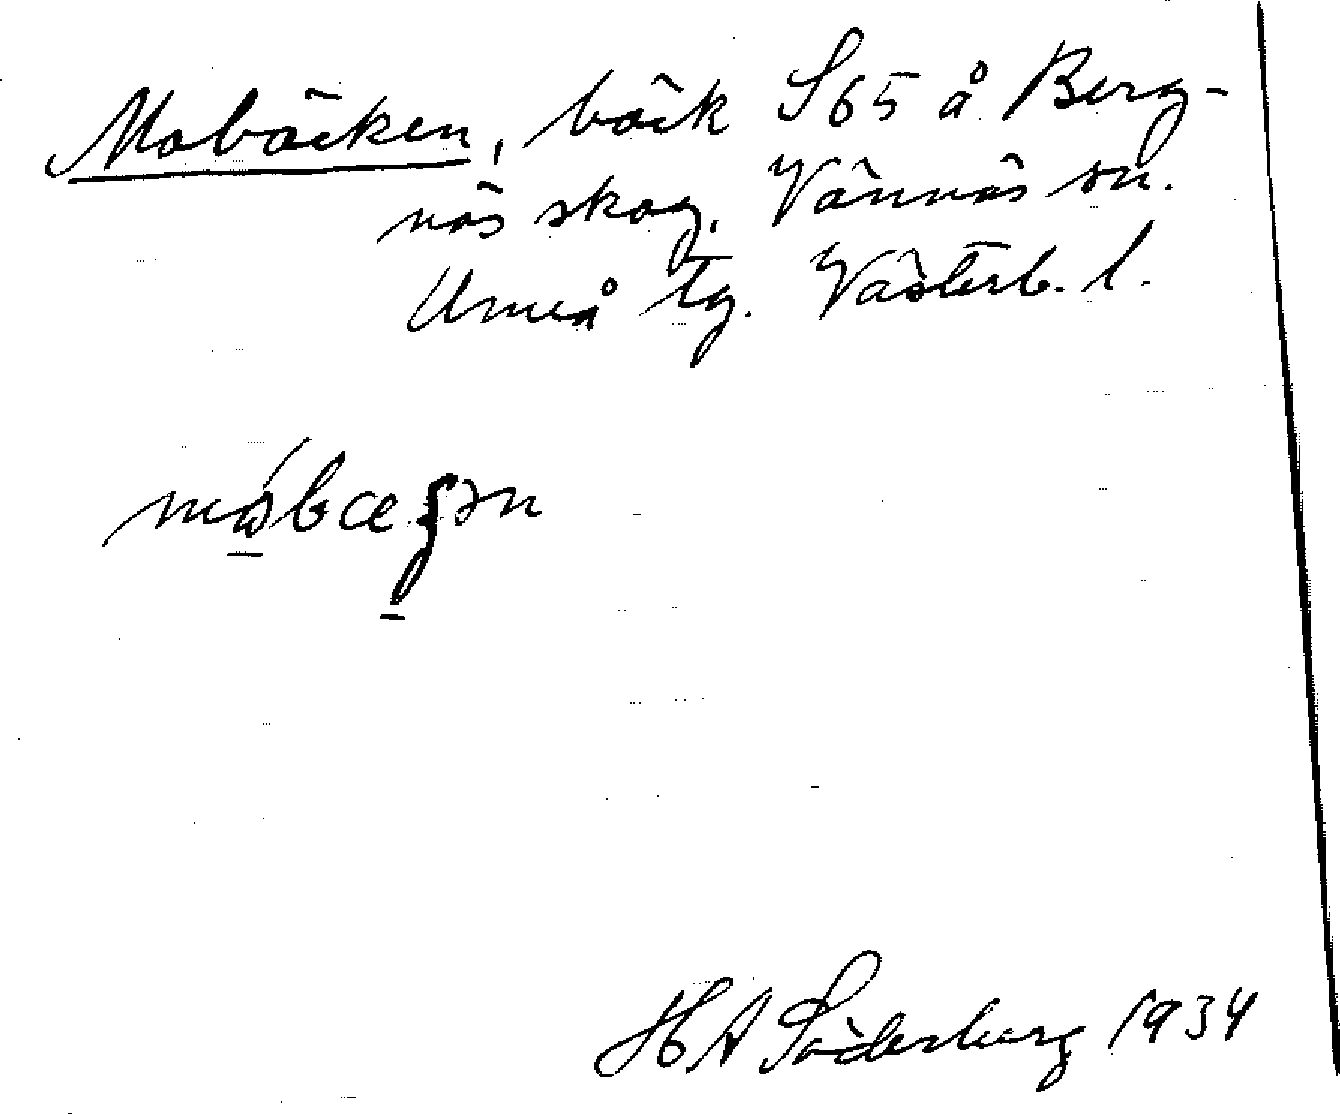 Mobäcken, bäck S65 å Berg-
näs skog. Vännäs sn.
Umeå tg. Västerb. l.
HA Söderberg 1934